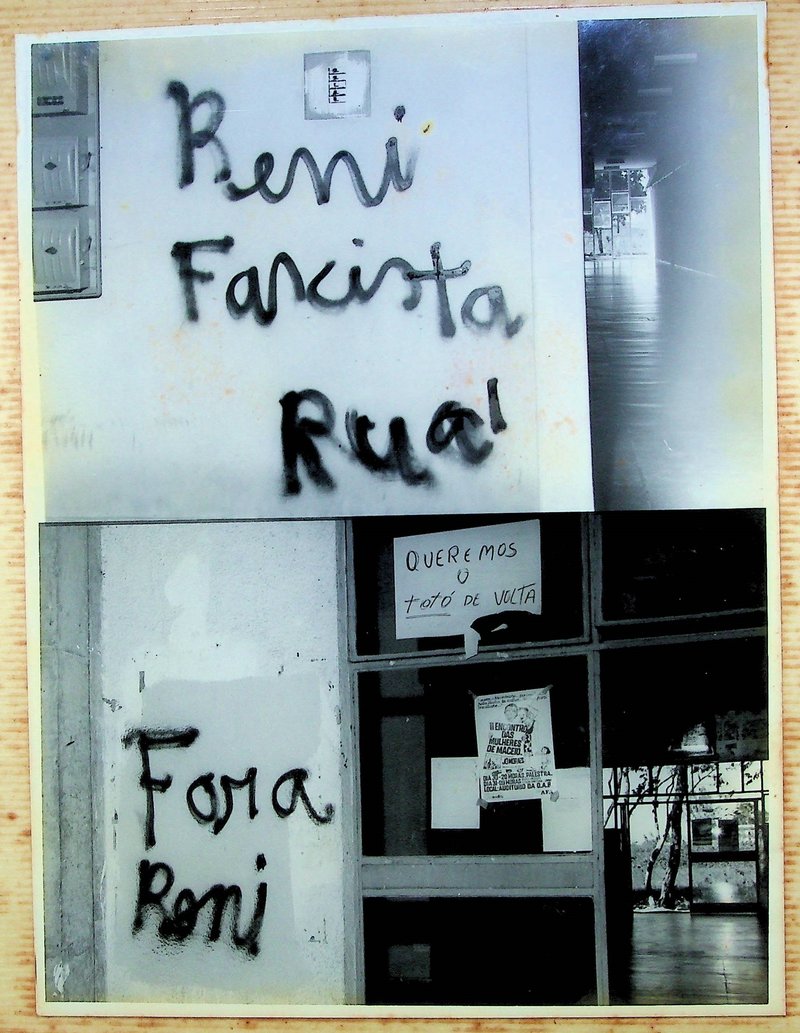 Reni
Fascista
Rua!
QUEREMOS
O
totó DE VOLTA
II ENCONTRO
DAS
MULHERES
DE MACEIÓ.
LOCAL: AUDITÓRIO DA O.A.B
Fora
Reni